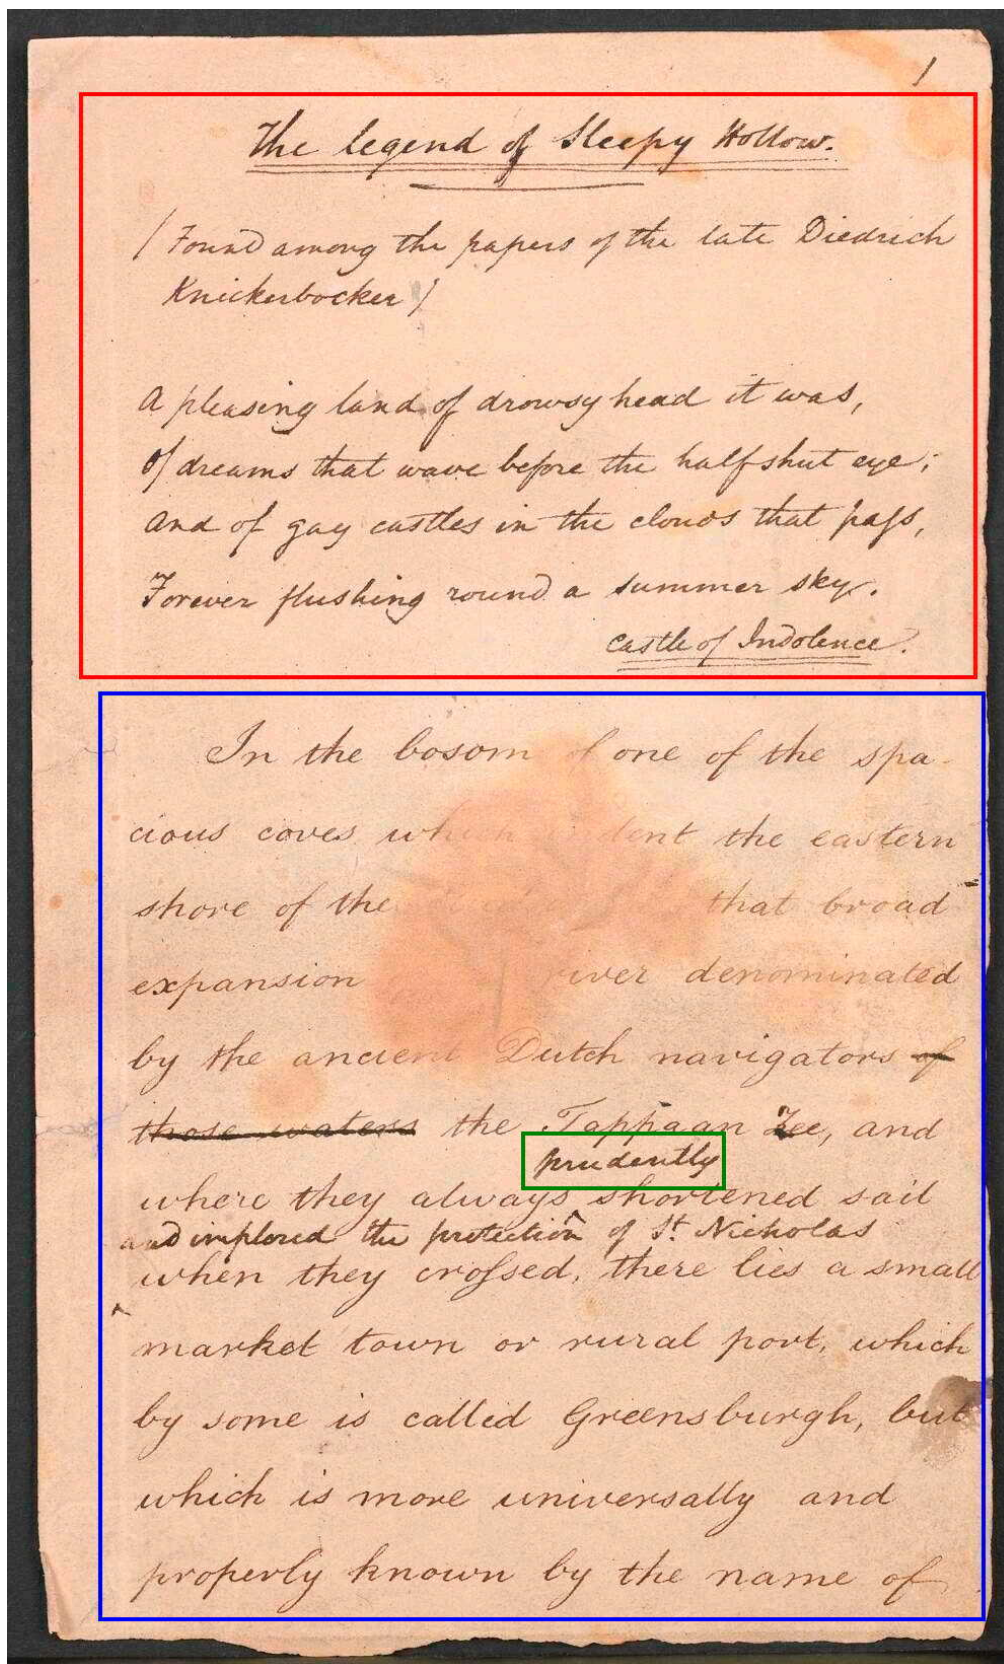 1
The legend of Sleepy Hollow.
/ Found among the papers of the late Diedrich
Knickerbocker /
A pleasing land of drowsy head it was,
Of dreams that wave before the half shut eye;
And of gay castles in the clouds that pass,
Forever flushing round a summer sky.
Castle of Indolence.
In the bosom of one of the spa-
cious coves which indent the eastern
shore of the that broad
expansion river denominated
by the ancient Dutch navigators of
those waters the Tappaan Zee, and
prudently
where they always shortened sail
and implored the protection of St. Nicholas
when they crossed, there lies a small
market town or rural port, which
by some is called Greensburgh, but
which is more universally and
properly known by the name of